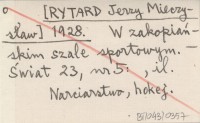 [RYTARD Jerzy Mieczy-
sław] 1928. W zakopiań-
skim szale sportowym. -
Świat 23, nr 5: , il.
Narciarstwo, hokej.
B/1043/0357